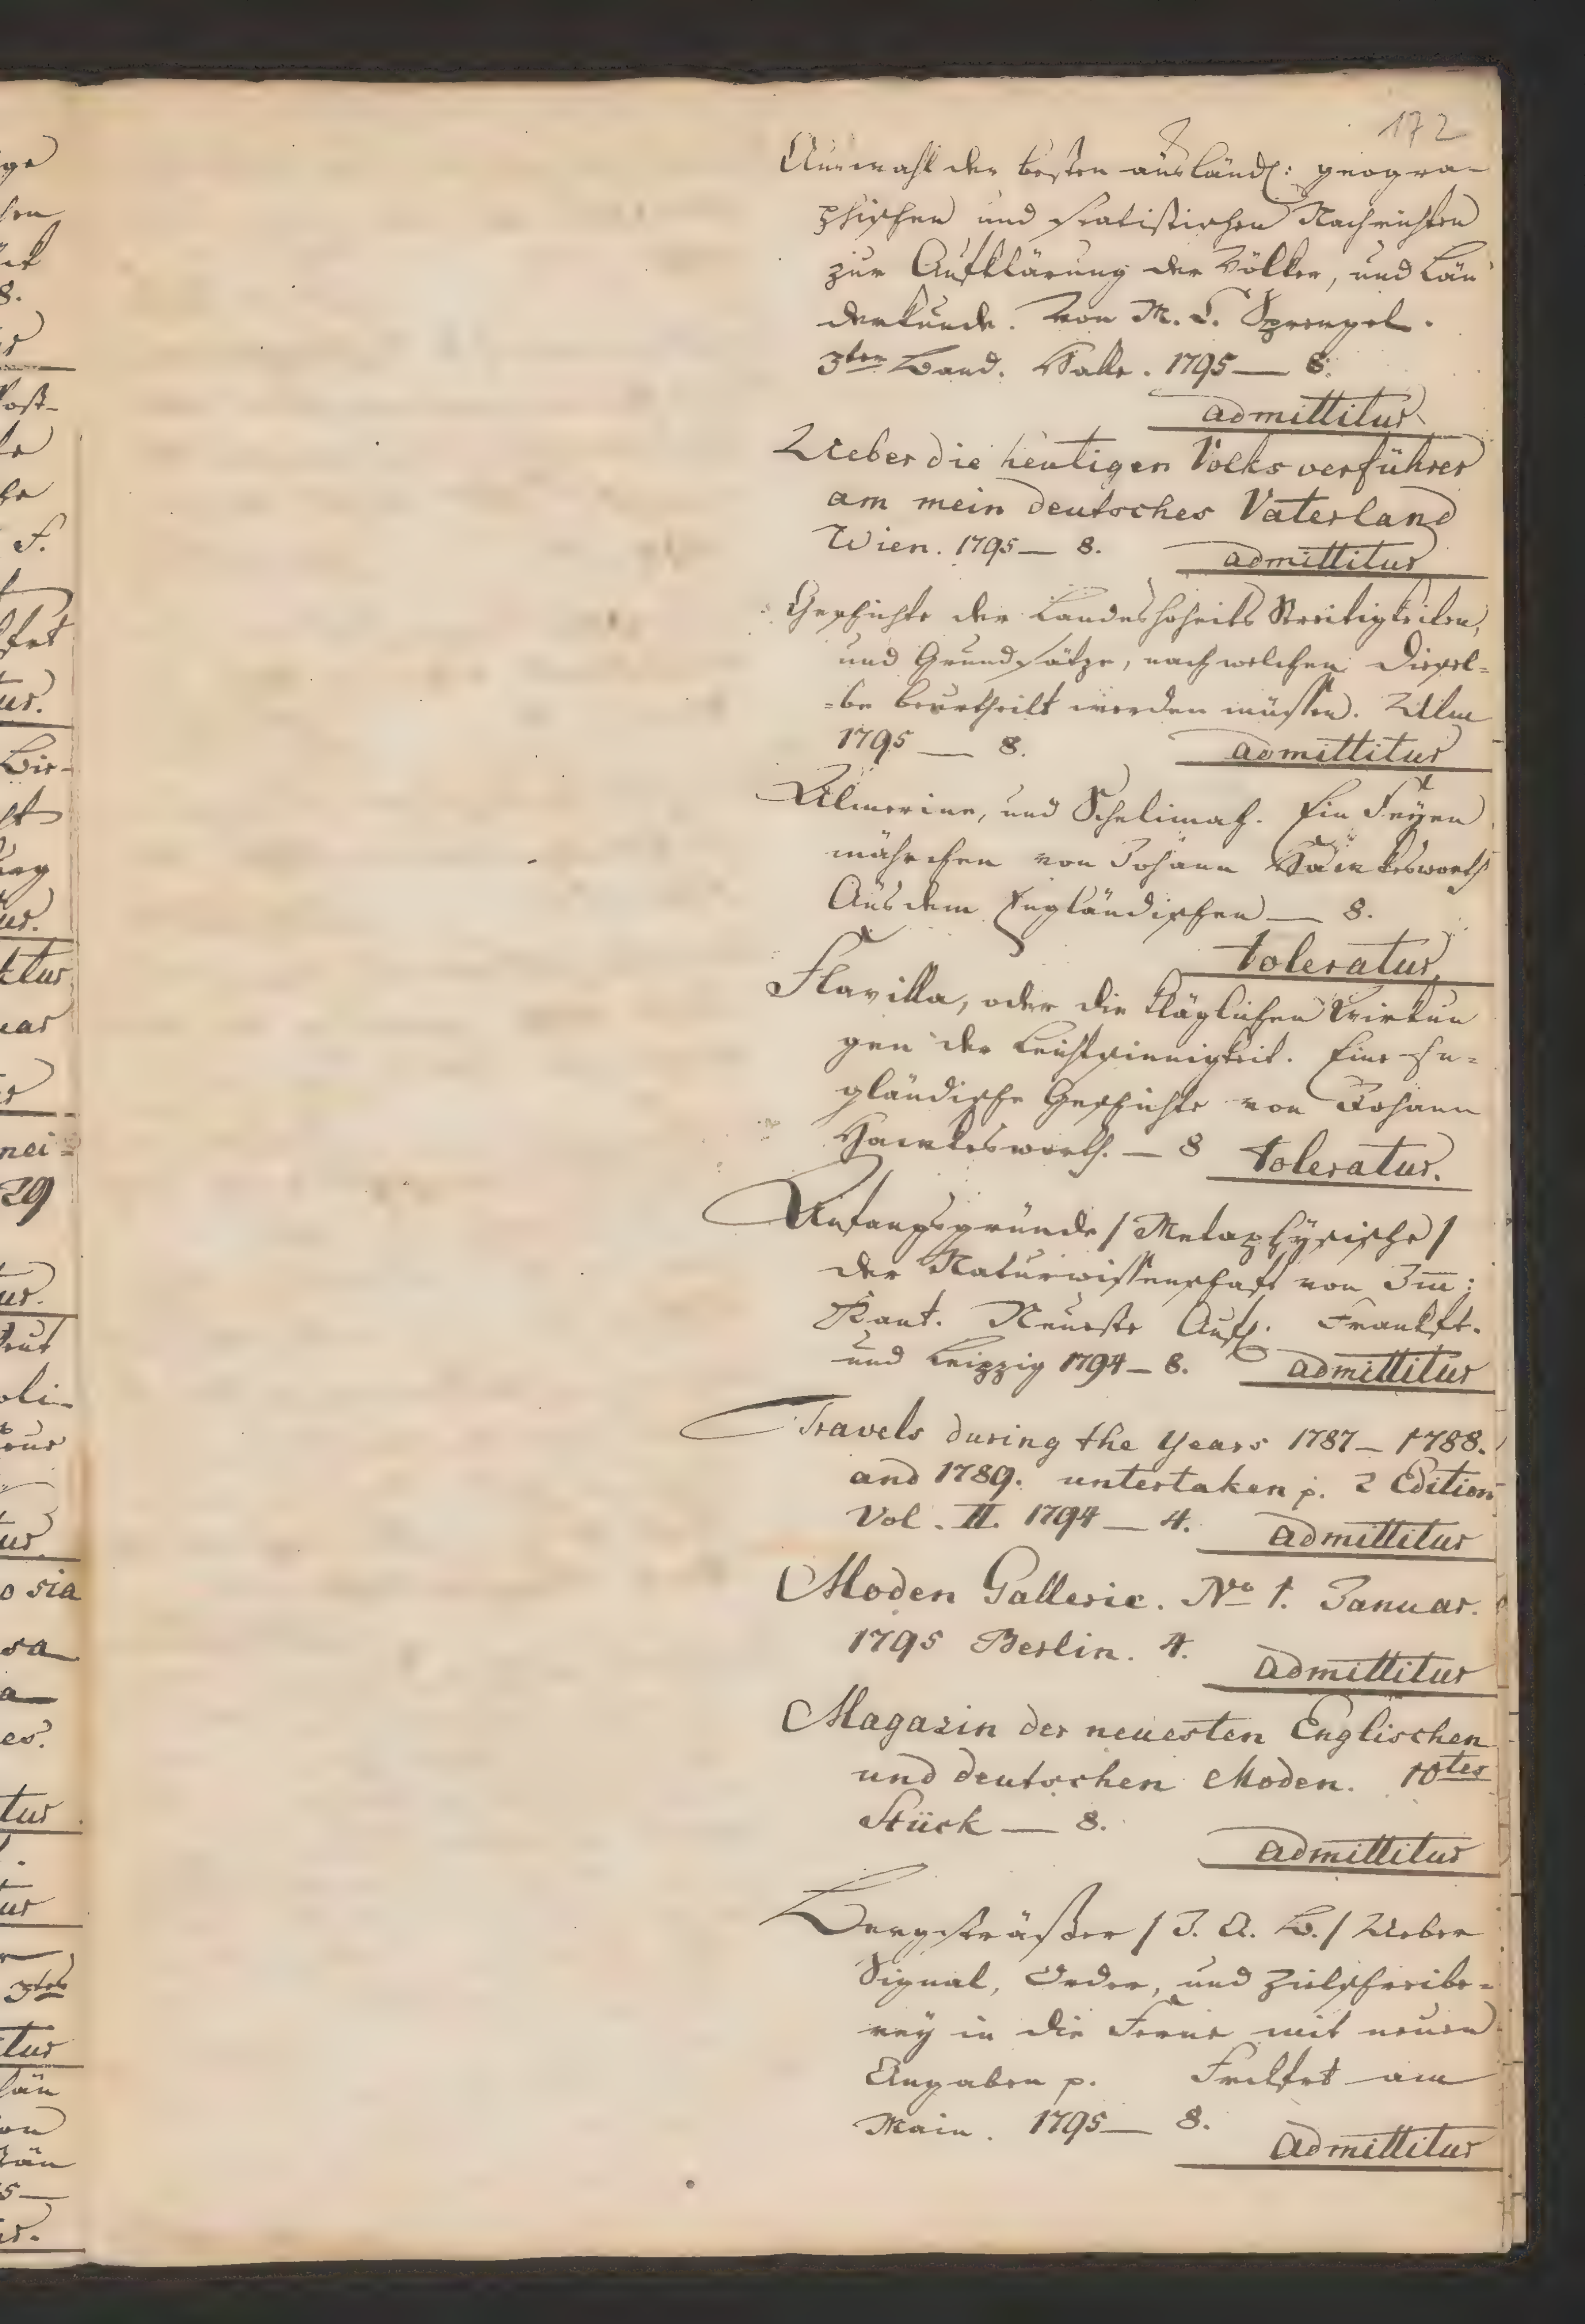 172
Auswahl der besten ausländ: geogra-
phischen und statistischen Nachrichten
zur Aufklärung der Völker, und Län
derkunde. Von M. C. Sprengel.
3ter Band. Halle. 1795 — 8.
admittitur
Ueber die heutigen Volksverführer
am mein deutsches Vaterland
Wien. 1795 — 8. admittitur
Geschichte der Landeshoheits Streitigkeiten,
und Grundsätze, nach welchen diesel=
=be beurtheilt werden müssen. Ulm
1795 — 8. admittitur
Almerine, und Schelimah. Ein Feyen
mährchen von Johann Hawkesworth
Aus dem Engländischen — 8.
toleratur.
Flavilla, oder die kläglichen Wirkun
gen der Leichtsinnigkeit. Eine En=
gländische Geschichte von Johann
Hawkesworth. — 8 toleratur.
Anfangsgründe / Metaphysische /
der Naturwissenschaft von Imm:
Kant. Neueste Aufl. Frankft.
und Leipzig 1794 — 8. admittitur
Travels during the Years 1787 — 1788.
and 1789. untertaken p. 2 Edition
Vol. II. 1794 — 4. admittitur
Moden Gallerie. No 1. Januar.
1795 Berlin. 4. admittitur
Magazin der neuesten Englischen
und deutschen Moden. 10tes
Stück — 8.
admittitur
Bergsträßer / J. A. B. / Ueber
Signal, Order, und Zielschreibe=
rey in die Ferne mit neuen
Angaben p. Frkfrt am
Main. 1795 — 8.
admittitur